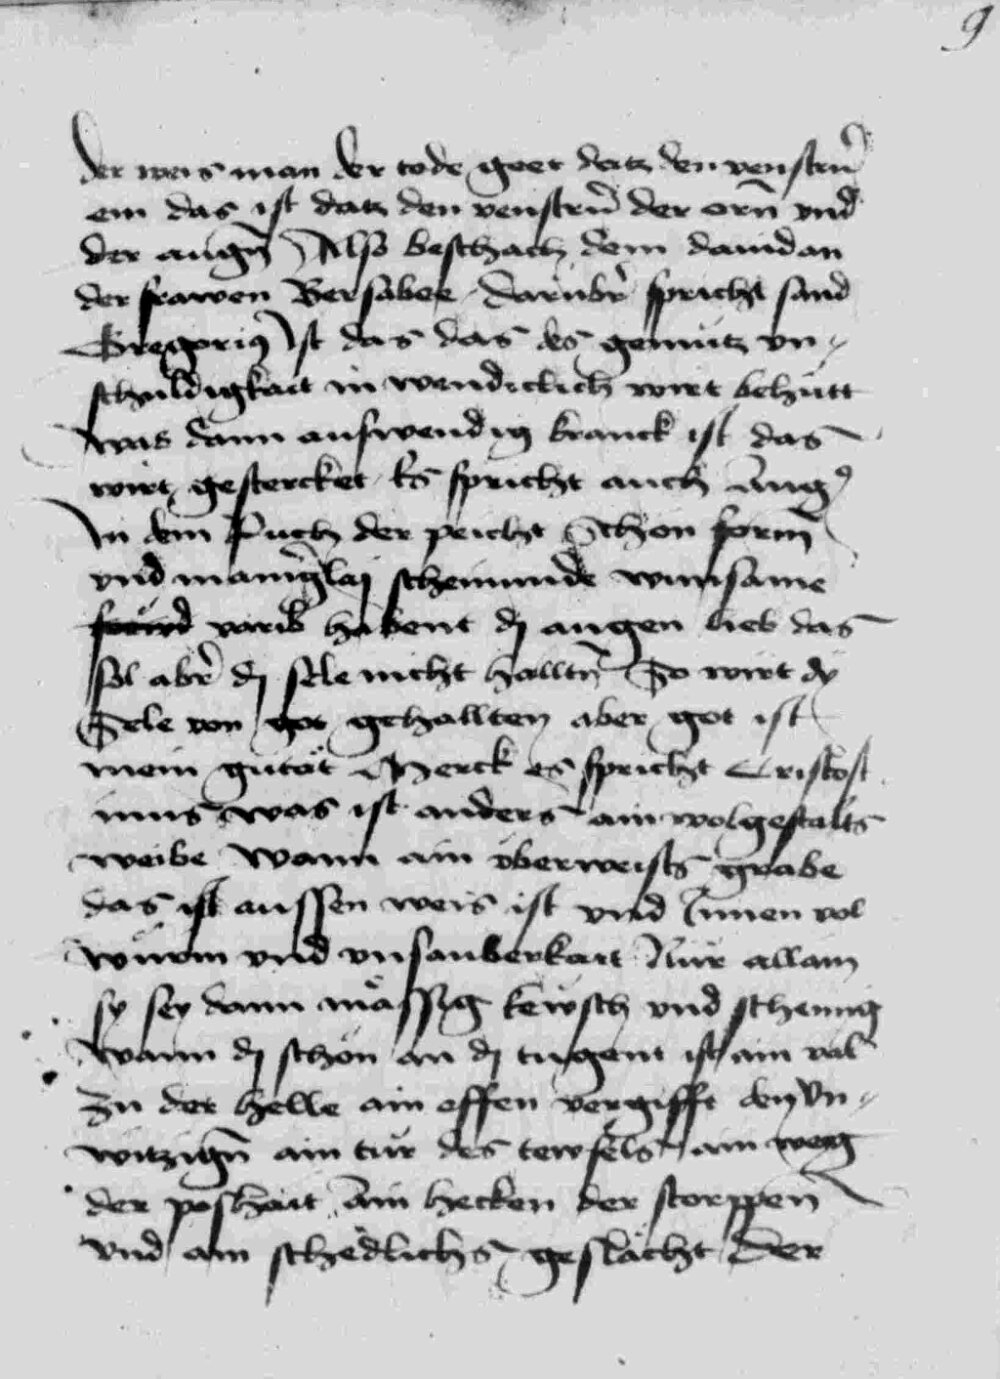 9
der weis man der tode geet datz den venstrn̄
ein das ist datz den venstrn̄ der orn̄ vnd
der augn̄ Also beschach dem dauid an
der frawen Bersabee darubr̄ spricht sand
Gregorius Ist das das des gemütz vn⸗
schuldigkait in wendiclich wirt behütt
was dann auswendig kranck ist das
wirt gestercket Es spricht auch Aug9
In dem Puch der peicht Schön form̄
vnd manigrlaj scheinunde wunsame
varib habent dj augen lieb das
sol abr̄ dj sele nicht halltn̄ So wirt dy
Sele von got gehallten aber got ist
mein gutät Merck es spricht Cristost
imus was ist anders ain wolgestalts
weibe Wann ain vberweists grabe
das ist aussen weis ist vnd Innen vol
würm vnd vnsauberkait Nur allain
sy sey dann mässig kewsch vnd schemig
Wann dj schön an dj tugent ist ain val
Zu der helle ain effen vergifft den vn⸗
witzign̄ ain tür des tewfels ain weg
der poshait Ain hecken der scorppen
vnd ain schedlichs geslächt Der